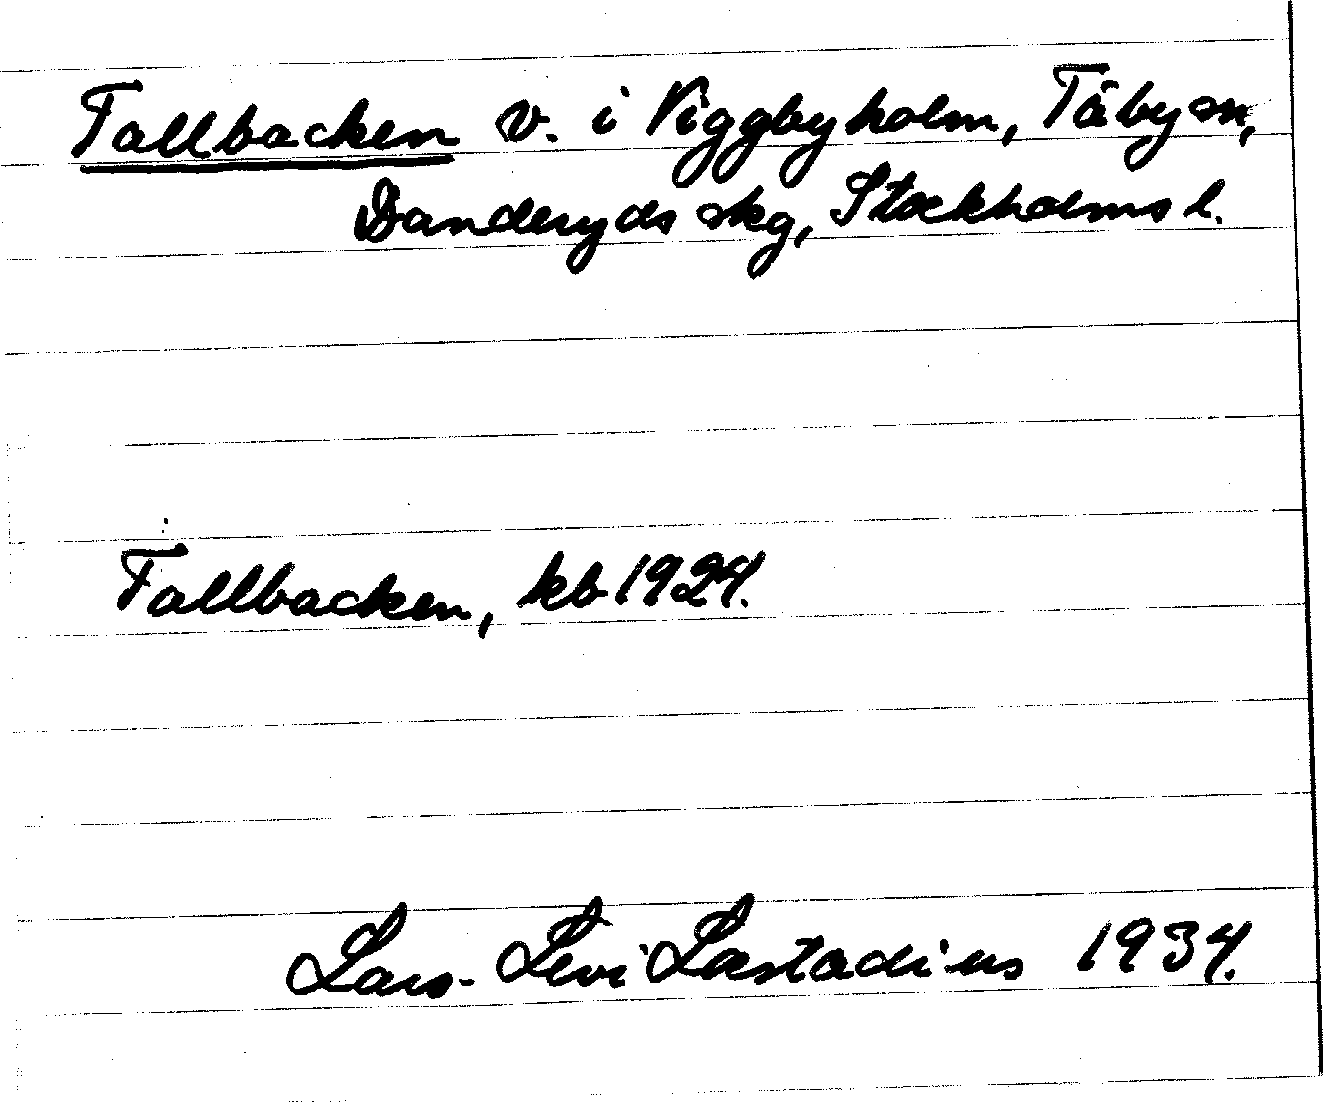 Tallbacken v. i Viggbyholm, Täby sn,
Danderyds skg, Stockholms l.
Tallbacken, kb 1924.
Lars-Levi Læstadius 1934.